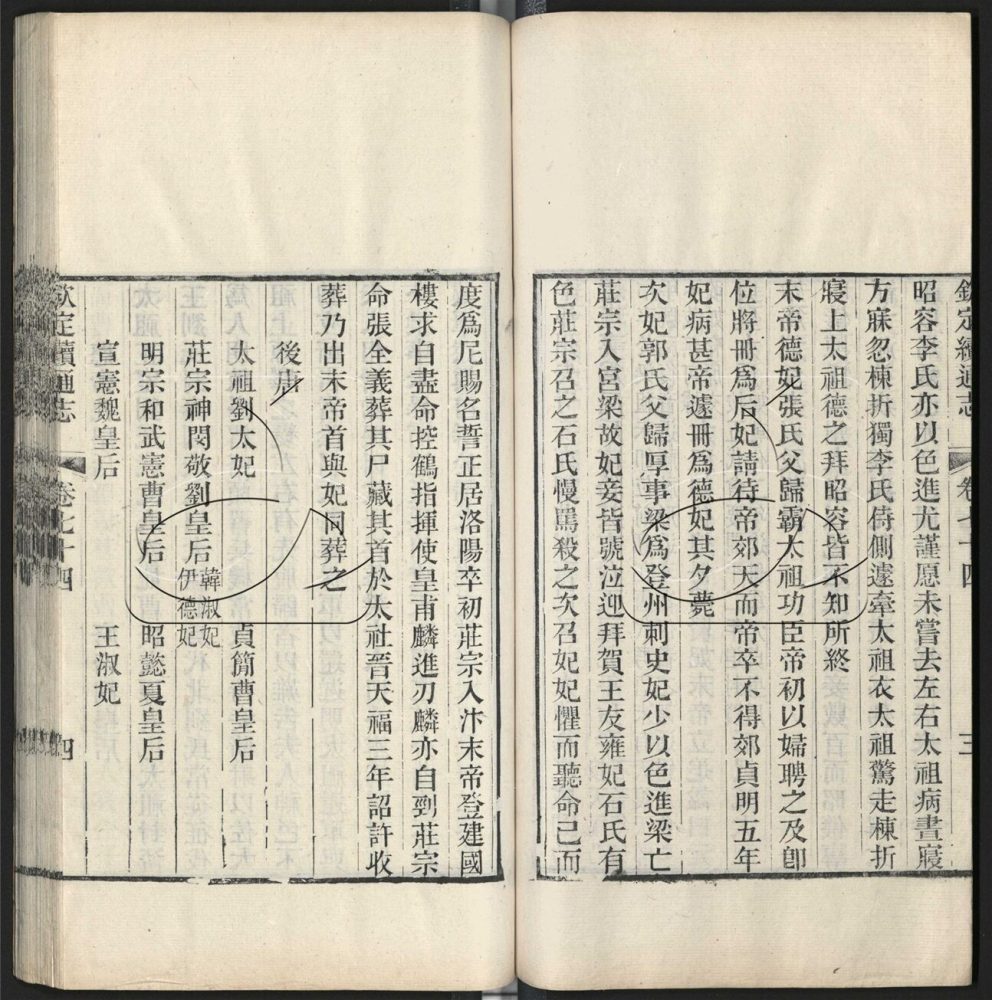 欽定續通志 卷七十四 三
昭容李氏亦以色進尤謹愿未嘗去左右太祖病晝寢
方寐忽棟折獨李氏侍側遽牽太祖衣太祖驚走棟折
寢上太祖德之拜昭容皆不知所終
末帝德妃張氏父歸霸太祖功臣帝初以婦聘之及卽
位將冊爲后妃請待帝郊天而帝卒不得郊貞明五年
妃病甚帝遽冊爲德妃其夕薨
次妃郭氏父歸厚事梁爲登州刺史妃少以色進梁亡
莊宗入宮梁故妃妾皆號泣迎拜賀王友雍妃石氏有
色莊宗召之石氏慢罵殺之次召妃妃懼而聽命已而
度爲尼賜名誓正居洛陽卒初莊宗入汴末帝登建國
樓求自盡命控鶴指揮使皇甫麟進刃麟亦自剄莊宗
命張全義葬其尸藏其首於太社晉天福三年詔許收
葬乃出末帝首與妃同葬之
後唐
太祖劉太妃 貞簡曹皇后
莊宗神閔敬劉皇后 韓淑妃 伊德妃
明宗和武憲曹皇后 昭懿夏皇后
宣憲魏皇后 王淑妃
欽定續通志 卷七十四 四